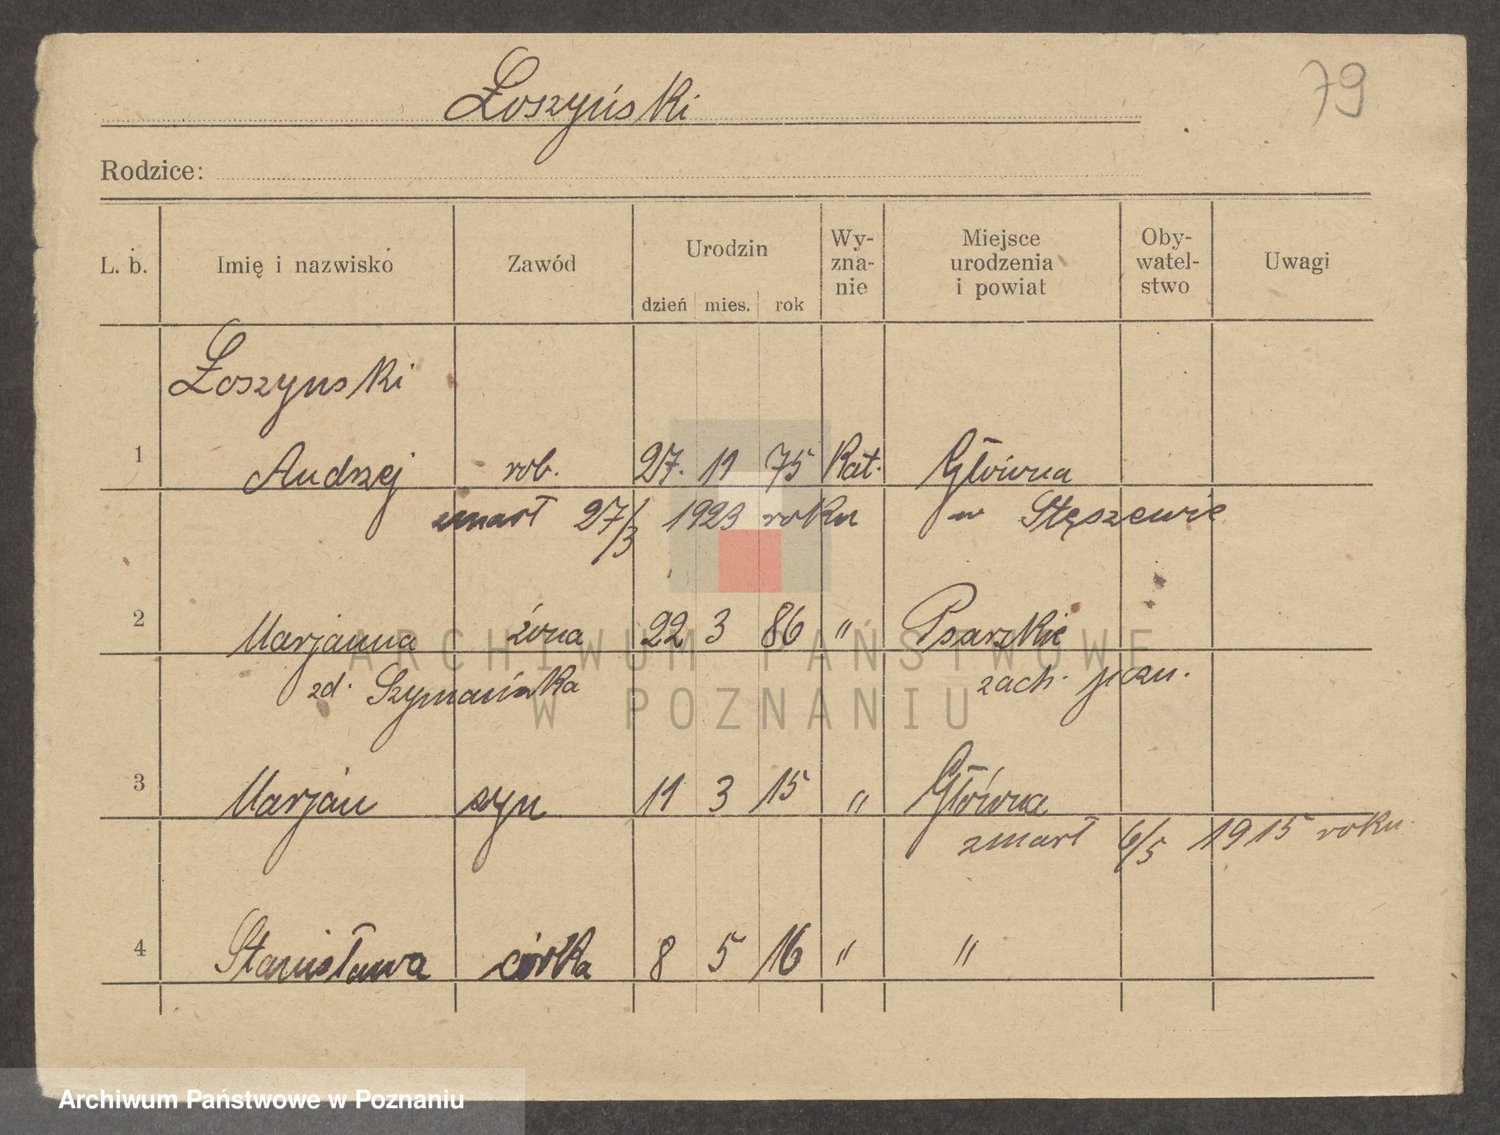 79
Łoszyński
Rodzice:
L. b. Imię i nazwisko Zawód Urodzin dzień mies. rok Wyznanie Miejsce urodzenia i powiat Obywatelstwo Uwagi
Łoszynski
1 Andrzej rob. 27. 11 75 Kat. Główna
zmarł 27/3 1923 roku w Stęszewie
2 Marjanna żona 22 3 86 " Psarskie
zd. Szymańska zach. pozn.
3 Marjan syn 11 3 15 " Główna
zmarł 6/5 1915 roku
4 Stanisława córka 8 5 16 " "
ARCHIWUM PAŃSTWOWE
W POZNANIU
Archiwum Państwowe w Poznaniu